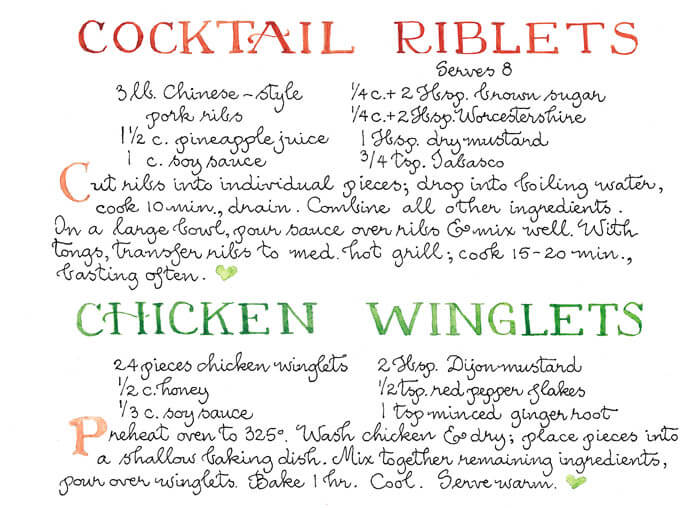 COCKTAIL RIBLETS
Serves 8
3 lb. Chinese-style
pork ribs
1 1/2 c. pineapple juice
1 c. soy sauce
1/4 c. + 2 Tbsp. brown sugar
1/4 c. + 2 Tbsp. Worcestershire
1 Tbsp. dry mustard
3/4 tsp. Tabasco
Cut ribs into individual pieces; drop into boiling water,
cook 10 min., drain. Combine all other ingredients.
In a large bowl, pour sauce over ribs & mix well. With
tongs, transfer ribs to med. hot grill; cook 15-20 min.,
basting often.
CHICKEN WINGLETS
24 pieces chicken winglets
1/2 c. honey
1/3 c. soy sauce
2 Tbsp. Dijon mustard
1/2 tsp. red pepper flakes
1 tsp minced ginger root
Preheat oven to 325°. Wash chicken & dry; place pieces into
a shallow baking dish. Mix together remaining ingredients,
pour over winglets. Bake 1 hr. Cool. Serve warm.